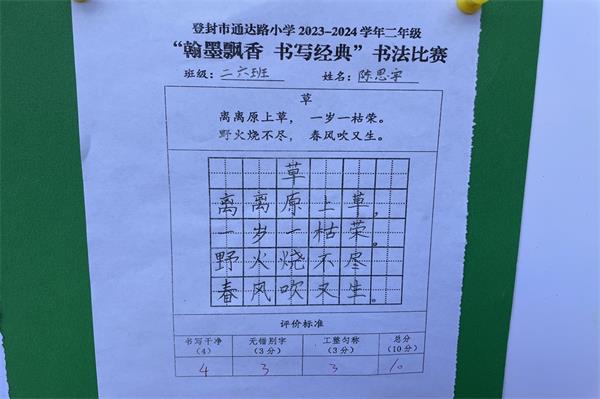 登封市通达路小学2023-2024学年二年级
“翰墨飘香 书写经典”书法比赛
班级:二六班 姓名:陈思宇
草
离离原上草， 一岁一枯荣。
野火烧不尽， 春风吹又生。
草
离离原上草，
一岁一枯荣。
野火烧不尽
春风吹又生。
评价标准
书写干净 无错别字 工整匀称 总分
(4) (3分) (3分) (10分)
4 3 3 10